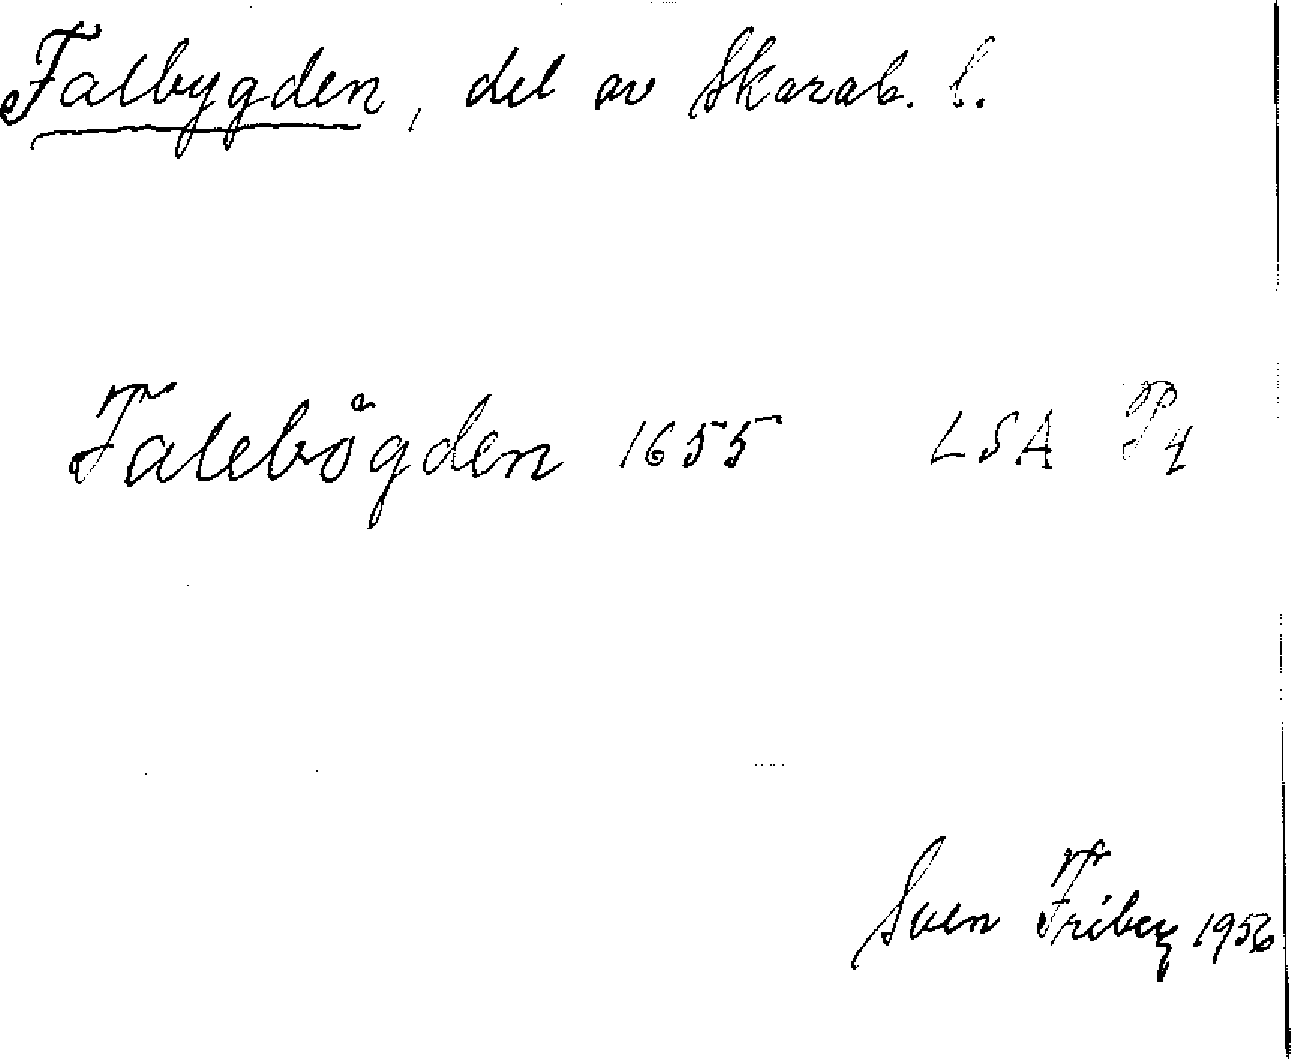 Falbygden, del av Skarab. l.
Falebögden 1655 LSA P4
Sven Friberg 1956